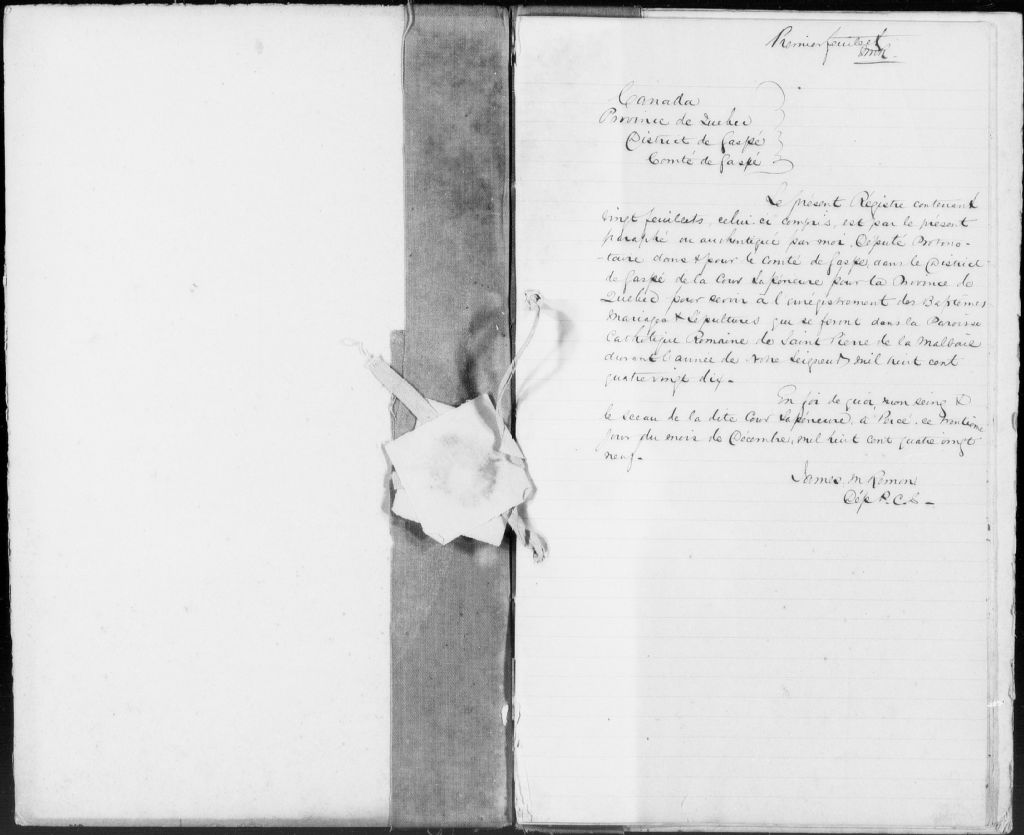 Premier feuillet
JMR
Canada
Province de Quebec
District de Gaspé
Comté de Gaspé
Le présent Régistre contenant
vingt feuillets, celui-ci compris, est par le présent
paraphé ou authentiqué par moi, Député Protono-
-taire dans & pour le Comté de Gaspé, dans le District
de Gaspé de la Cour Supérieure pour la Province de
Quebec pour servir à l'enrégistrement des Baptêmes
Mariages & Sépultures qui se feront dans la Paroisse
Catholique Romaine de Saint Pierre de la Malbaie
durant l'année de Notre Seigneur, mil huit cent
quatre vingt dix -
En foi de quoi, mon seing &
le sceau de la dite Cour Supérieure, à Percé, ce trentième
jour du mois de Décembre, mil huit cent quatre vingt
neuf -
James M Remon
Dép P.C.S -